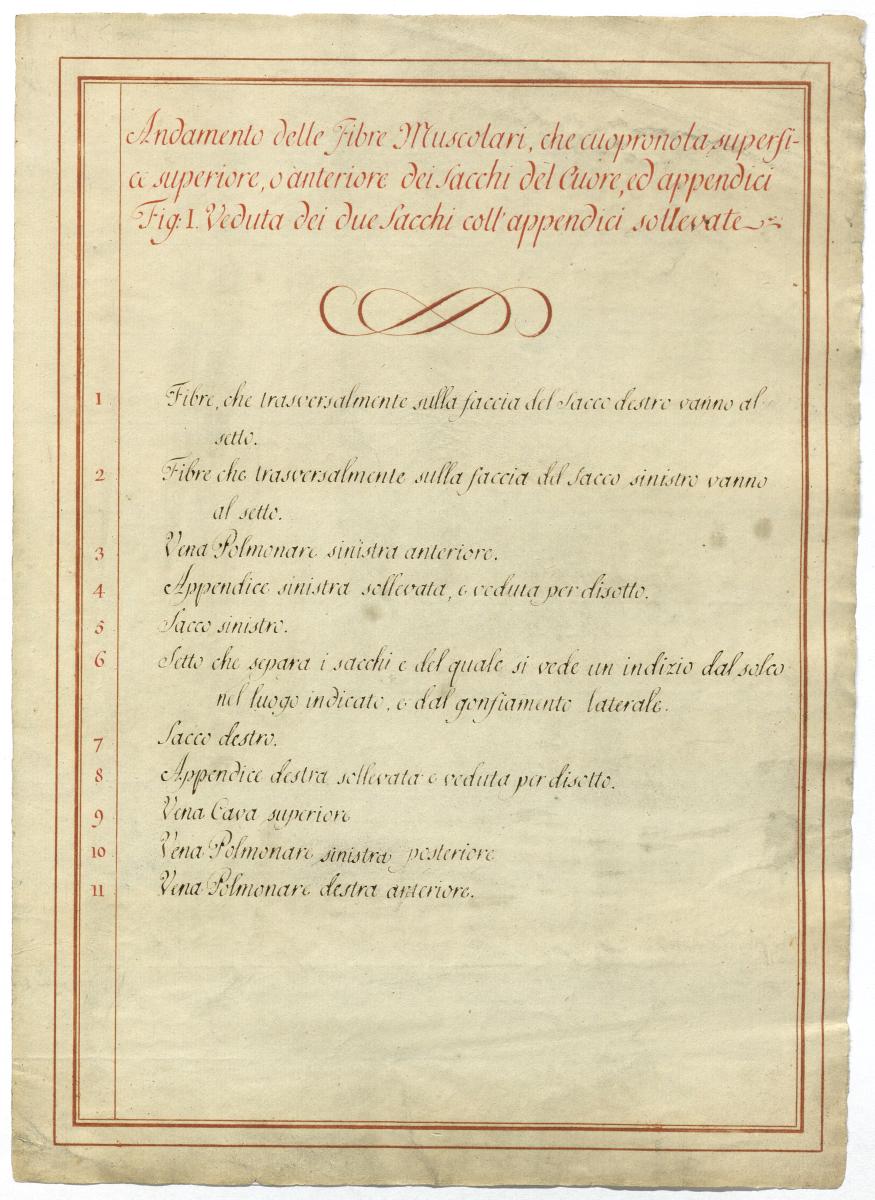 Andamento delle Fibre Muscolari, che cuopronola superfi-
ce superiore, o anteriore dei Sacchi del Cuore, ed appendici
Fig: I. Veduta dei due Sacchi coll'appendici sollevate
1 Fibre, che trasversalmente sulla faccia del Sacco destro vanno al
setto.
2 Fibre che trasversalmente sulla faccia del Sacco sinistro vanno
al setto.
3 Vena Polmonare sinistra anteriore.
4 Appendice sinistra sollevata, e veduta per disotto.
5 Sacco sinistro.
6 Setto che separa i sacchi e del quale si vede un indizio dal solco
nel luogo indicato, e dal gonfiamento laterale.
7 Sacco destro.
8 Appendice destra sollevata e veduta per disotto.
9 Vena Cava superiore
10 Vena Polmonare sinistra posteriore
11 Vena Polmonare destra anteriore.